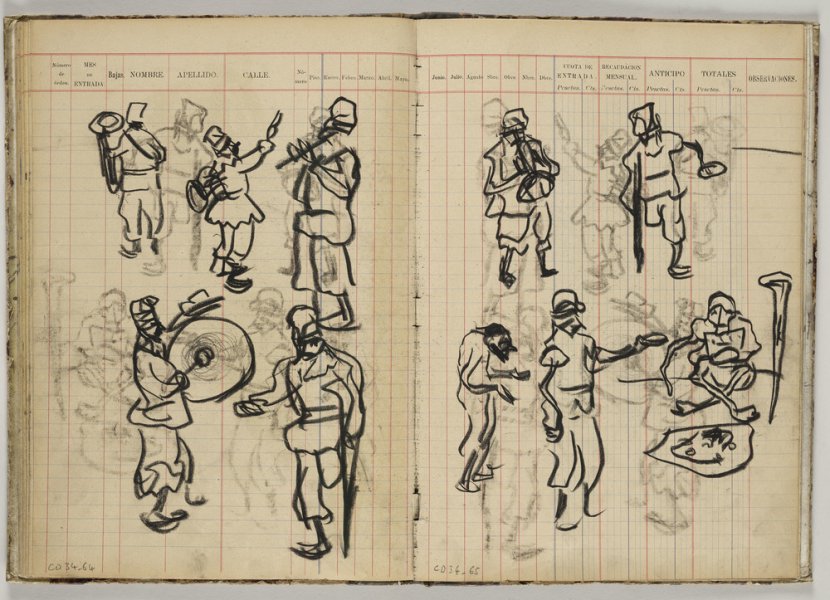 Número de órden. MES DE ENTRADA Bajas NOMBRE. APELLIDO. CALLE. Nú- mero Enero. Febro. Marzo. Abril. Mayo.
Junio. Julio. Agosto Sbre. Obre. Nbre. Dbre. CUOTA DE ENTRADA. Pesetas. Cts. RECAUDACION MENSUAL. Pesetas. Cts. ANTICIPO Pesetas. Cts TOTALES Pesetas. Cts. OBSERVACIONES.
CD34_64
CD34_65